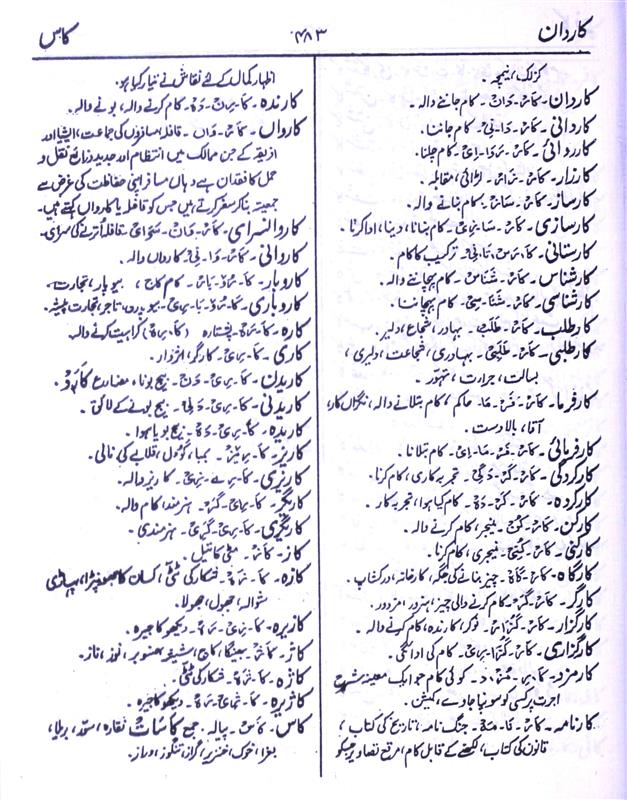 کاردان
۴۸۳
کاس
کزلک، نیمچہ۔
کاردان۔ کَاسْ۔ دَانْ۔ کام جاننے والہ۔
کاردانی۔ کَاسْ۔ دَا۔ نِیْ۔ کام جاننا۔
کارروائی۔ کَاسْ۔ رَدَا۔ اِیْ۔ کام چلنا۔
کارزار۔ کَاسْ۔ زَاسْ۔ لڑائی، مقابلہ۔
کارساز۔ کَاسْ۔ سَاسْ۔ کام بنانے والہ۔
کارسازی۔ کام بنانا، دینا، ادا کرنا۔
کارستانی۔ ترکیب کا کام۔
کارشناس۔ کَاسْ۔ شَنَاسْ۔ کام پہچاننے والہ۔
کارشناسی۔ کام پہچاننا۔
کارطلب۔ کَاسْ۔ طَلَبْ۔ بہادر، شجاع، دلیر۔
کارطلبی۔ کَاسْ۔ طَلَبِیْ۔ بہادری، شجاعت، دلیری،
بسالت، جرارت، تہوّر۔
کارفرما۔ کَاسْ۔ فَرْ۔ مَا۔ حاکم، کام بتلانے والہ، نگراں کار،
آقا، بالادست۔
کارفرمائی۔ کَاسْ۔ فَرْ۔ مَا۔ اِیْ۔ کام بتلانا۔
کارکردگی۔ کَاسْ۔ کَرْ۔ دَگِیْ۔ تجربہ کاری، کام کرنا۔
کارکردہ۔ کَاسْ۔ کَرْ۔ دَہْ۔ کام کیا ہوا، تجربہ کار۔
کارکن۔ کَاسْ۔ کُنْ۔ منیجر، کام کرنے والہ۔
کارکنی۔ کَاسْ۔ کُنِیْ۔ منیجری، کام کرنا۔
کارگاہ۔ کَاسْ۔ گَاہْ۔ چیز بنانے کی جگہ، کارخانہ، ورکشاپ۔
کارگر۔ کَاسْ۔ گَرْ۔ کام کرنے والی چیز، ہنرور، مزدور۔
کارگزار۔ نوکر، کارندہ، کام کرنے والہ۔
کارگزاری۔ کام کی ادائگی۔
کارمزد۔ کوئی کام جو ایک معینہ شدہ
اجرت پر کسی کو سونپا جاوے، کمیشن۔
کارنامہ۔ کَاسْ۔ نَا۔ مَہْ۔ جنگ نامہ، تاریخ کی کتاب،
قانون کی کتاب، لکھنے کے قابل کام، مرقع تصاویر جسکو
اظہار کمال کے لئے نقاش نے تیار کیا ہو۔
کارندہ۔ کام کرنے والہ، بونے والہ۔
کارواں۔ کَاسْ۔ وَاں۔ قافلہ، مسافروں کی جماعت، ایشیا اور
افریقہ کے جن ممالک میں انتظام اور جدید ذرائع نقل و
حمل کا فقدان ہے وہاں مسافر اپنی حفاظت کی غرض سے
جمعیتہ بنا کر سفر کرتے ہیں جس کو قافلہ یا کارواں کہتے ہیں۔
کاروانسرای۔ قافلہ اُترنے کی سرای۔
کاروانی۔ کَاسْ۔ وَا۔ نِیْ۔ کارواں والہ۔
کاروبار۔ کام کاج، بیوپار، تجارت۔
کاروباری۔ بیوپاری، تاجر، تجارت پیشہ۔
کارہ۔ پشتارہ کراہیت کرنے والہ۔
کاری۔ کَا۔ رِیْ۔ کارگر، اثردار۔
کاریدن۔ کَا۔ رِیْ۔ دَنْ۔ بیج بونا، مضارع کَارَدْ۔
کاریدنی۔ کَا۔ رِیْ۔ دَنِیْ۔ بیج بونے کے لائق۔
کاریدہ۔ کَا۔ رِیْ۔ دَہْ۔ بیج بویا ہوا۔
کاریز۔ کَا۔ رِیْزْ۔ بمبا، گول، قلابے کی نالی۔
کاریزی۔ کَا۔ رِے۔ زِیْ۔ کاریز والہ۔
کاریگر۔ کَا۔ رِیْ۔ گَرْ۔ ہنرمند، کام والہ۔
کاریگری۔ کَا۔ رِیْ۔ گَرِیْ۔ ہنرمندی۔
کاز۔ کَاسْ۔ مٹی کا تیل۔
کازہ۔ کَا۔ زَہْ۔ شکار کی ٹٹی، کسان کا جھونپڑا، پہاڑی
شوالہ، جھول، جھولا۔
کازیرہ۔ کَا۔ زِیْ۔ رَہْ۔ دیکھو کاجیرہ۔
کاژ۔ کَاژْ۔ بھینگا، کاج، شیشہ، صنوبر، نوز، ناز۔
کاژہ۔ کَا۔ ژَہْ۔ شکار کی ٹٹی۔
کاژیرہ۔ کَا۔ ژِیْ۔ رَہْ۔ دیکھو کاجیرہ۔
کاس۔ کَاسْ۔ پیالہ۔ جمع کَاسَاتْ نقارہ،
بغرا، خوک، خنزیر، گراز،